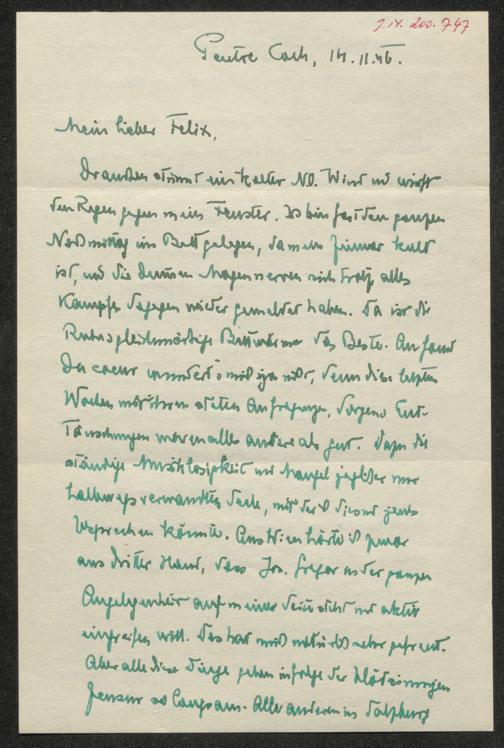 J.N. 200.747
Pentre Coch, 14.11.46.
Mein lieber Felix,
Draussen stürmt ein kalter NO. Wind und wirft
den Regen gegen mein Fenster. Ich bin fast den ganzen
Nachmittag im Bett gelegen, da mein Zimmer kalt
ist, und die dummen Magennerven sich trotz alles
Kampfes dagegen wieder gemeldet haben. Da ist die
Ruhe gleichmässige Bettwärme das Beste. Au fond
du coeur wundert's mich ja nicht, denn diese letzten
Wochen mit ihren steten Aufregungen, Sorgen u Ent-
täuschungen waren alles andere als gut. Dazu die
ständige und Mangel jeglicher nur
halbwegs verwandten Seele, mit der ich dies und jenes
besprechen könnte. Aus Wien hörte ich zwar
aus dritter Hand, dass Jos. Gregor in der ganzen
Angelegenheit auf meiner Seite steht und aktiv
eingreifen will. Das hat mich natürlich sehr gefreut.
Aber alle diese Dinge gehen infolge der
Zensur so langsam. Alle anderen in Salzburg